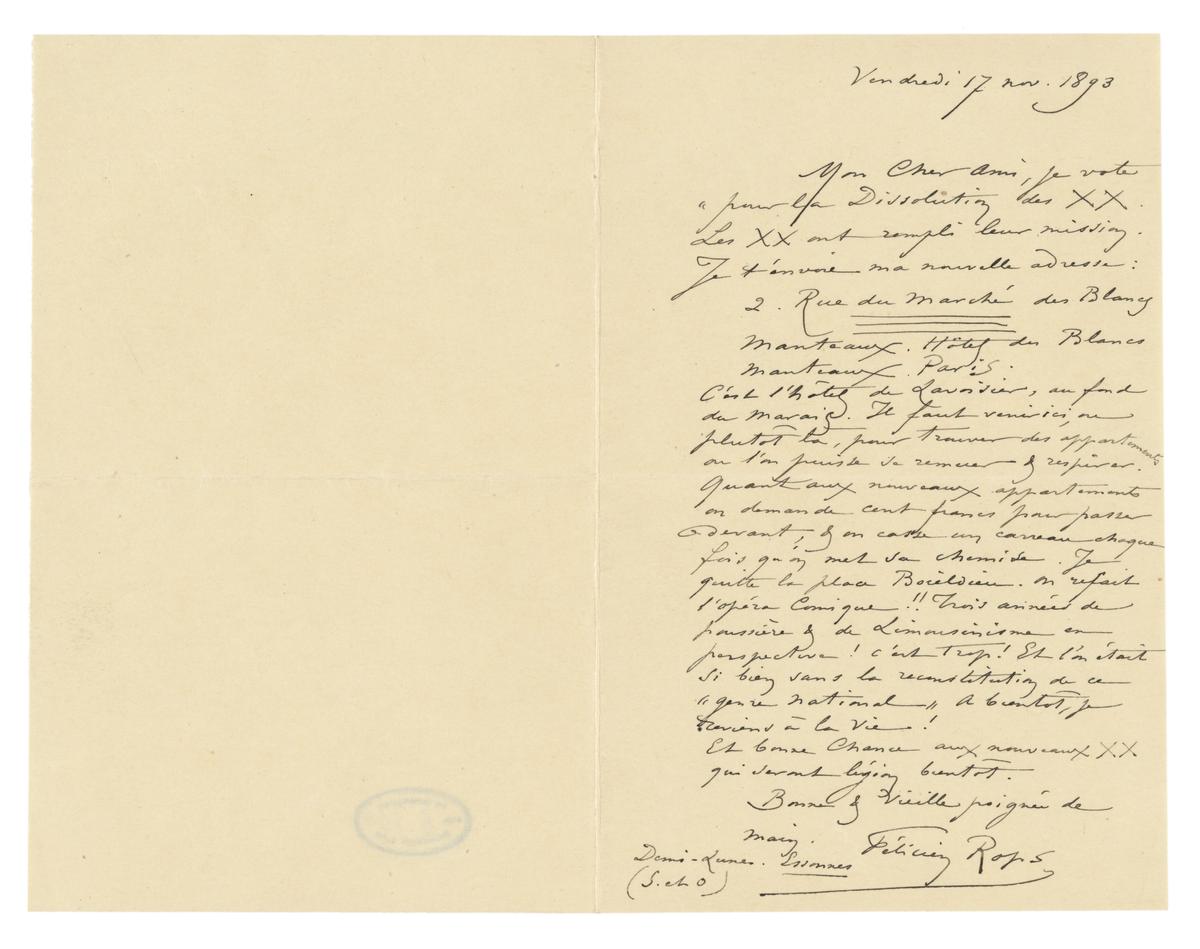 Vendredi 17 nov. 1893
Mon Cher Ami, je vote
« pour la Dissolution des XX.
Les XX ont rempli leur mission.
Je t'envoie ma nouvelle adresse :
2. Rue du Marché des Blancs
Manteaux. Hôtel des Blancs
Manteaux. Paris.
C'est l'hôtel de Lavoisier, au fond
du Marais. Il faut venir ici, ou
plutôt là, pour trouver des appartements
ou l'on puisse se remuer & respirer.
Quant aux nouveaux appartements
on demande cent francs pour passer
devant, & on casse un carreau chaque
fois qu'on met sa chemise. Je
quitte la place Boïeldieu. on refait
l'opéra Comique !! Trois années de
poussière & de Limousinisme en
perspective ! c'est trop ! Et l'on était
si bien sans la reconstitution de ce
« genre national » A bientôt, je
reviens à la Vie !
Et bonne Chance aux nouveaux XX
qui seront légion bientôt.
Bonne & Vieille poignée de
main. Félicien Rops
Demi-Lune. Essonnes
(S. et O)